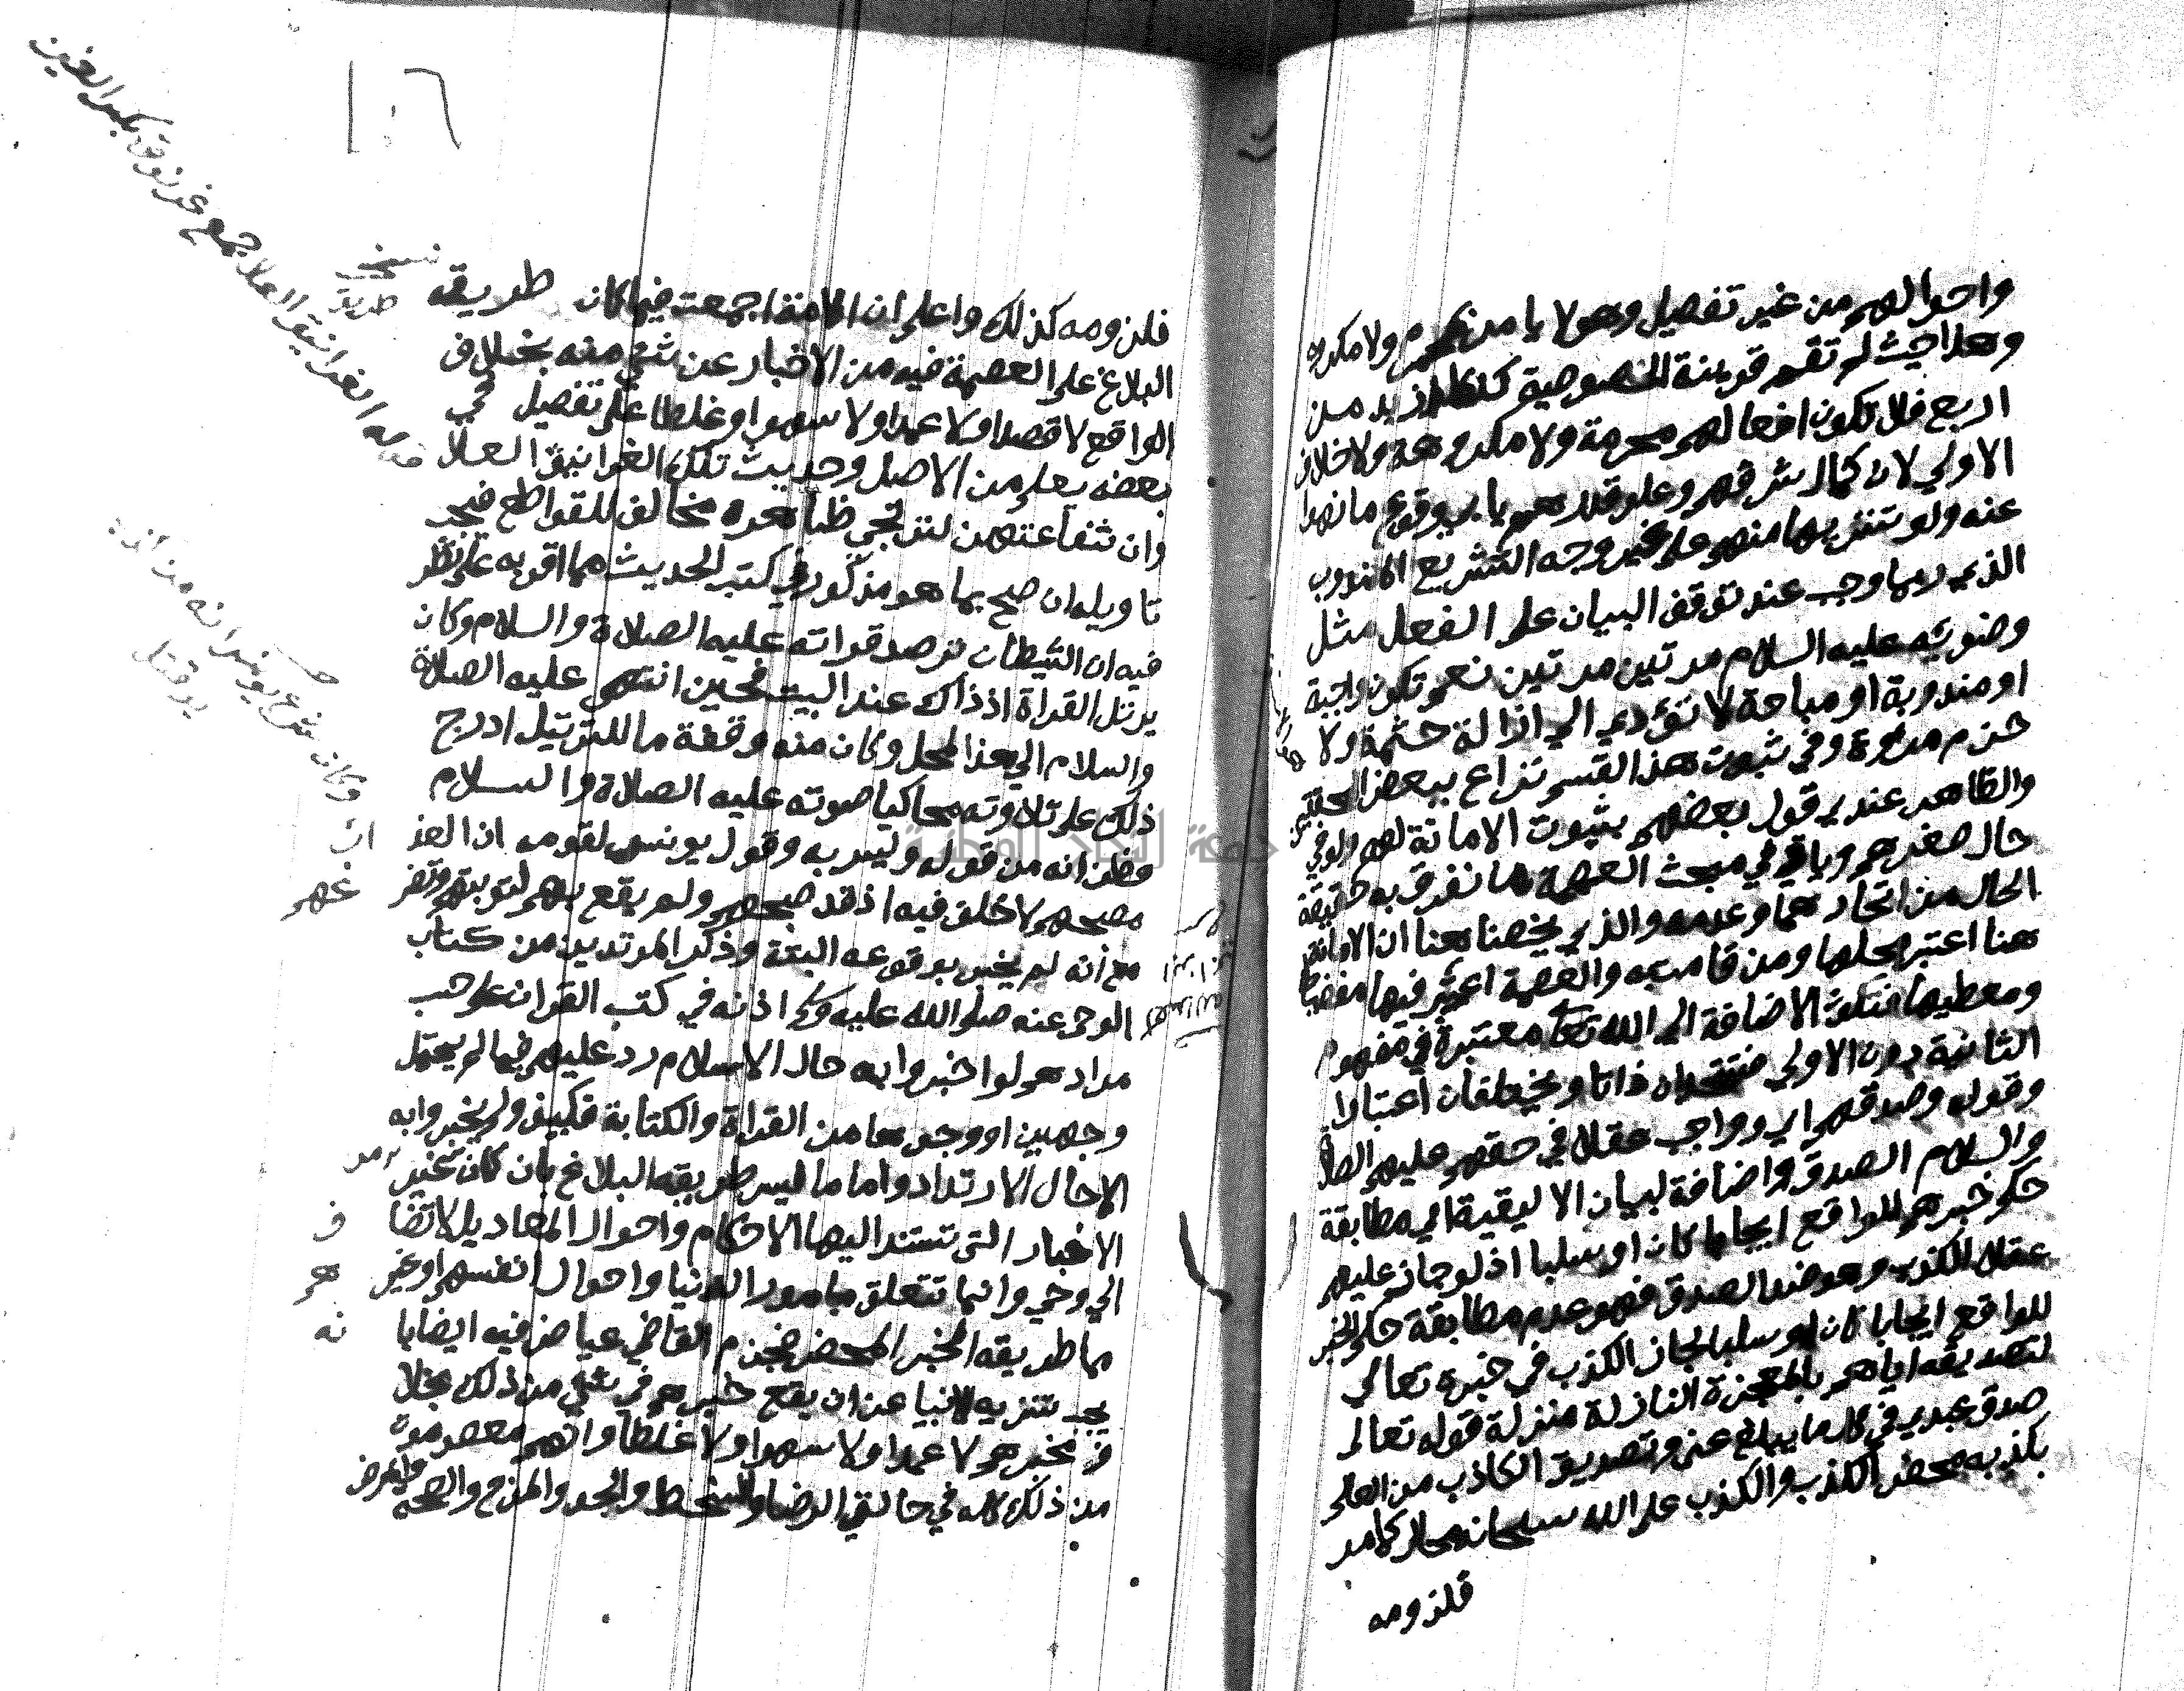 واحوالهم من غير تفصيل وهو لا يامر بمحرم ولا مكروه
وهذا حيث لم تقم قرينة الخصوصية كنكاح ازيد من
اربع فلا تكون افعالهم محرمة ولا مكروهة ولا خلاف
الاولي لان كمال شرفهم وعلو قدرهم يابي وقوع ما نهوا
عنه ولو تنزيها منهم على غير وجه التشريع المندوب
الذي ربما وجب عند توقف البيان على الفعل مثل
وضوئه عليه السلام مرتين مرتين نعم تكون واجبة
او مندوبة او مباحة لا تؤدي الي ازالة حشمة ولا
خرم مروة وفي ثبوت هذا القسم نزاع ببعض المحققين
والظاهر عندي قول بعضهم بثبوت الامانة لهم ولو في
حال صغرهم وياتي في مبحث العصمة ما نفرق به حقيقة
الحال من اتحادهما وعدمه والذي يخصنا هنا ان الامانة
هنا اعتبر محلها ومن قامت به والعصمة اعتبر فيها مفضيها
ومعطيها فتكون الاضافة الى الله تعا معتبرة في مفهوم
الثانية دون الاولي فتتحدان ذاتا ويختلفان اعتبارا
وقوله وصدقهم اي وواجب عقلا في حقهم عليهم الصلاة
والسلام الصدق واضافة لبيان الا ليقية الي مطابقة
حكم خبرهم للواقع ايجابا كان او سلبا اذ لو جاز عليهم
عقلا الكذب وهو ضد الصدق فهو عدم مطابقة حكم الخبر
للواقع ايجابا كان او سلبا لجاز الكذب في خبره تعالي
لتصديقه اياهم بالمعجزة النازلة منزلة قوله تعالى
صدق عبدي في كل ما يبلغ عني وتصديق الكاذب من العالم
بكذبه محض الكذب والكذب على الله سبحانه محال كما مر
فلزومه
١٠٦
فلزومه كذلك واعلم ان الامة اجمعت فيما كان طريقه
البلاغ على العصمة فيه من الاخبار عن شي منه بخلاف
الواقع لا قصدا ولا عمدا ولا سهوا وغلطا على تفصيل في
بعضه يعلم من الاصل وحديث تلك الغرانيق العلا
وان شفاعتهن لترتجي ظاهره مخالف للقواطع فيجب
تاويله ان صح بما هو مذكور في كتب الحديث مما اقربه على نظر
فيه ان الشيطان ترصد قراته عليه الصلاة والسلام وكان
يرتل القراة اذ ذاك عند البيت فحين انتهى عليه الصلاة
والسلام الي هذا المحل وكان منه وقفة ما للترتيل ادرج
ذلك على تلاوته محاكيا صوته عليه الصلاة والسلام
فظن انه من قوله وليس به وقول يونس لقومه ان العذاب
مصبحهم لا خلف فيه اذ قد صبحهم ولم يقع بهم لتوبتهم وتضرعهم
مع انه لم يخبر بوقوعه البتة وذكر المرتدين من كتاب
الوحي عنه صلى الله عليه وسلم اذنه في كتب القران على حسب
مرادهم لو اخبروا به حال الاسلام رد عليهم فيما لم يحتمل
وجهين او وجوها من القراة والكتابة فكيف ولم يخبروا به
الا حال الارتداد واما ما ليس طريقه البلاغ بان كان من غير
الاخبار التي تستند اليها الاحكام واحوال المعاد بل لا تضاف
الي وحي وانما تتعلق بامور الدنيا واحوال انفسهم او غيرهم
مما طريقه الخبر المحض فجزم القاضي عياض فيه ايضا بانه
يجب تنزيه الانبيا عن ان يقع خبرهم في شي من ذلك بخلا
ف مخبرهم لا عمدا ولا سهوا ولا غلطا وانهم معصومون
من ذلك كله في حالتي الرضا والسخط والجد والمزح والصحة والمرض
قوله الغرانيق العلا جمع غرنوق بكسر الغين